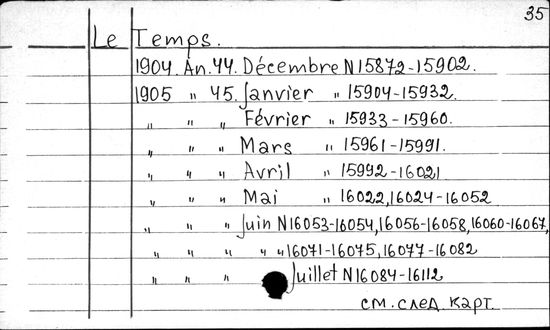 35
Le Temps.
1904. An. 44. Décembre N15872-15902.
1905 " 45. Janvier " 15904-15932.
" " " Février " 15933-15960.
" " " Mars " 15961-15991.
" " " Avril " 15992-16021
" " " Mai " 16022,16024-16052
" " " Juin N16053-16054,16056-16058,16060-16067,
" " " " " 16071-16075,16077-16082
" " " Juillet N16084-16112
см. след. карт.